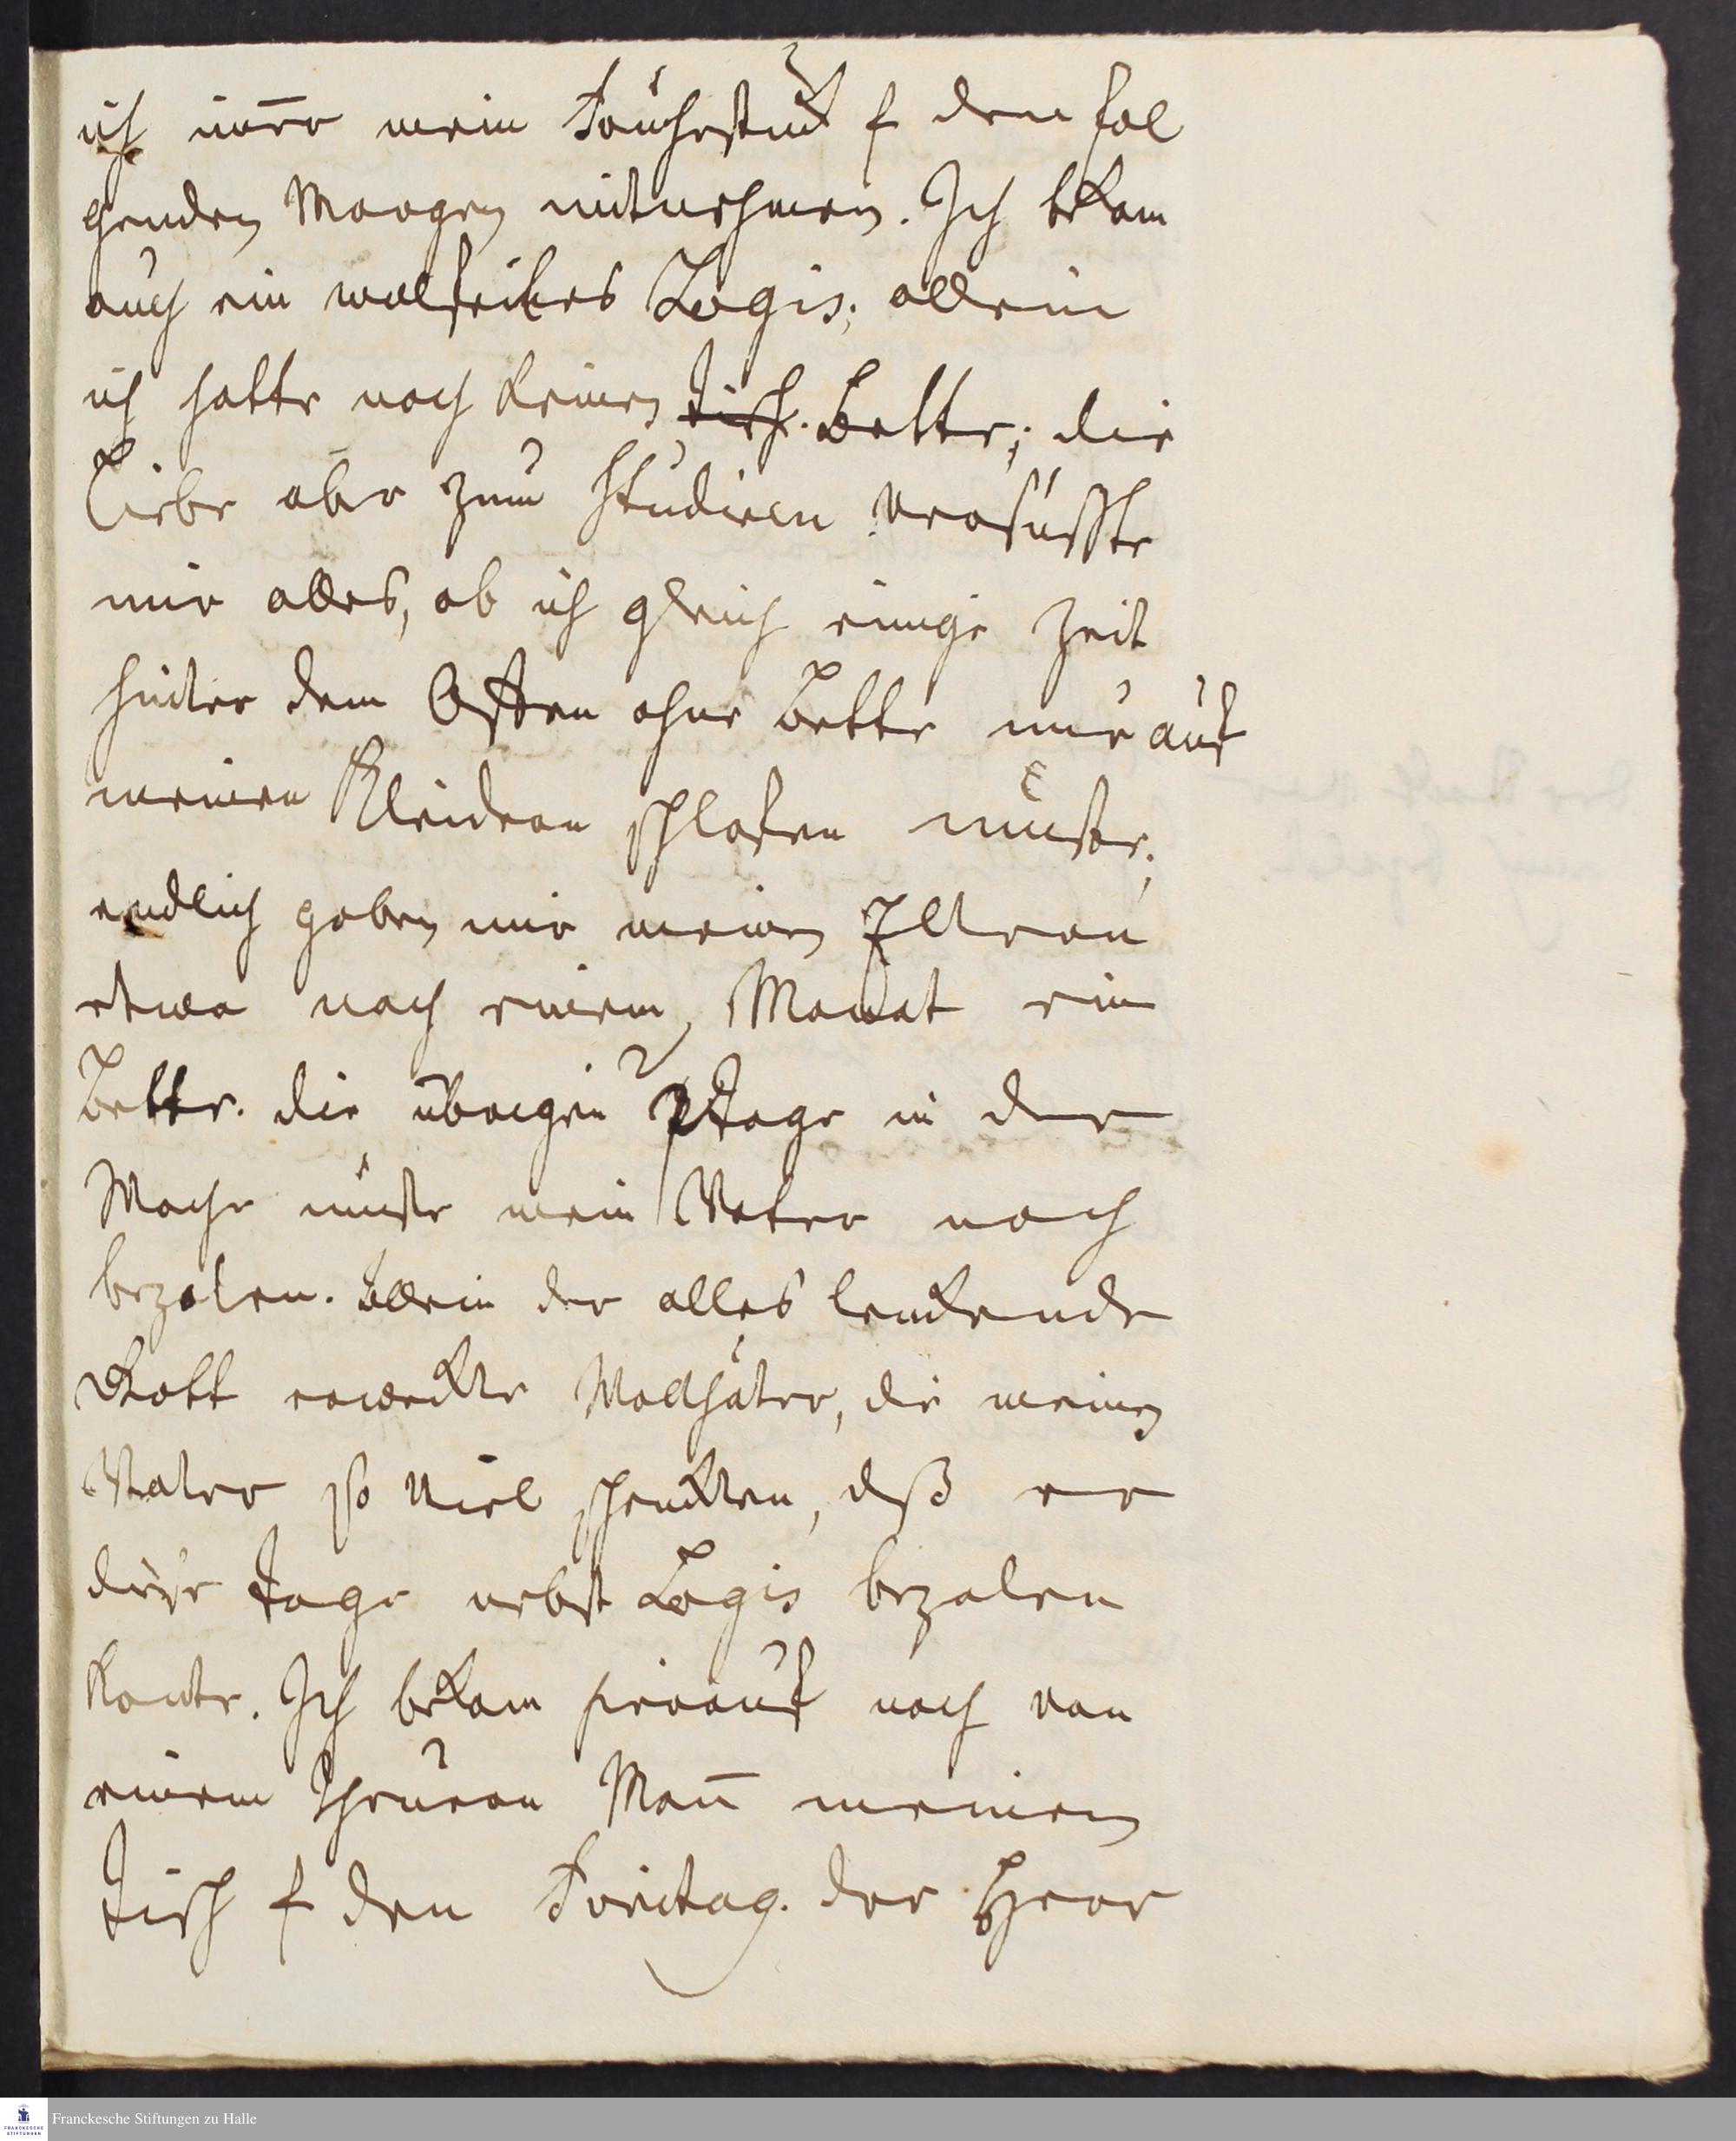 ich im̄er mein Frühestück f den fol
genden Morgen mitnehmen. Ich bekam
auch ein wolfeiles Logis; allein
ich hatte noch keinen Tisch. Bette; die
Liebe aber zum studiren versüsste
mir alles, ob ich gleich einige Zeit
hinter dem Offen ohne Bette nur auf
meinen Kleidern schlafen muste;
endlich gaben mir meinen Eltern
etwa nach einem Monat ein
Bette. die übrigen 2 Tage in der
Woche muste mein Vater noch
bezalen. Allein der alles lenkende
Gott erweckte Wolthäter, die meinen
Vater so viel schenkten, dß er
diese Tage nebst Logis bezalen
konte. Ich bekam hierauf noch von
einem theuren Man̄ meinen
Tisch f den Freitag. der Herr
Franckesche Stiftungen zu Halle
FRANCKESCHE
STIFTUNGEN